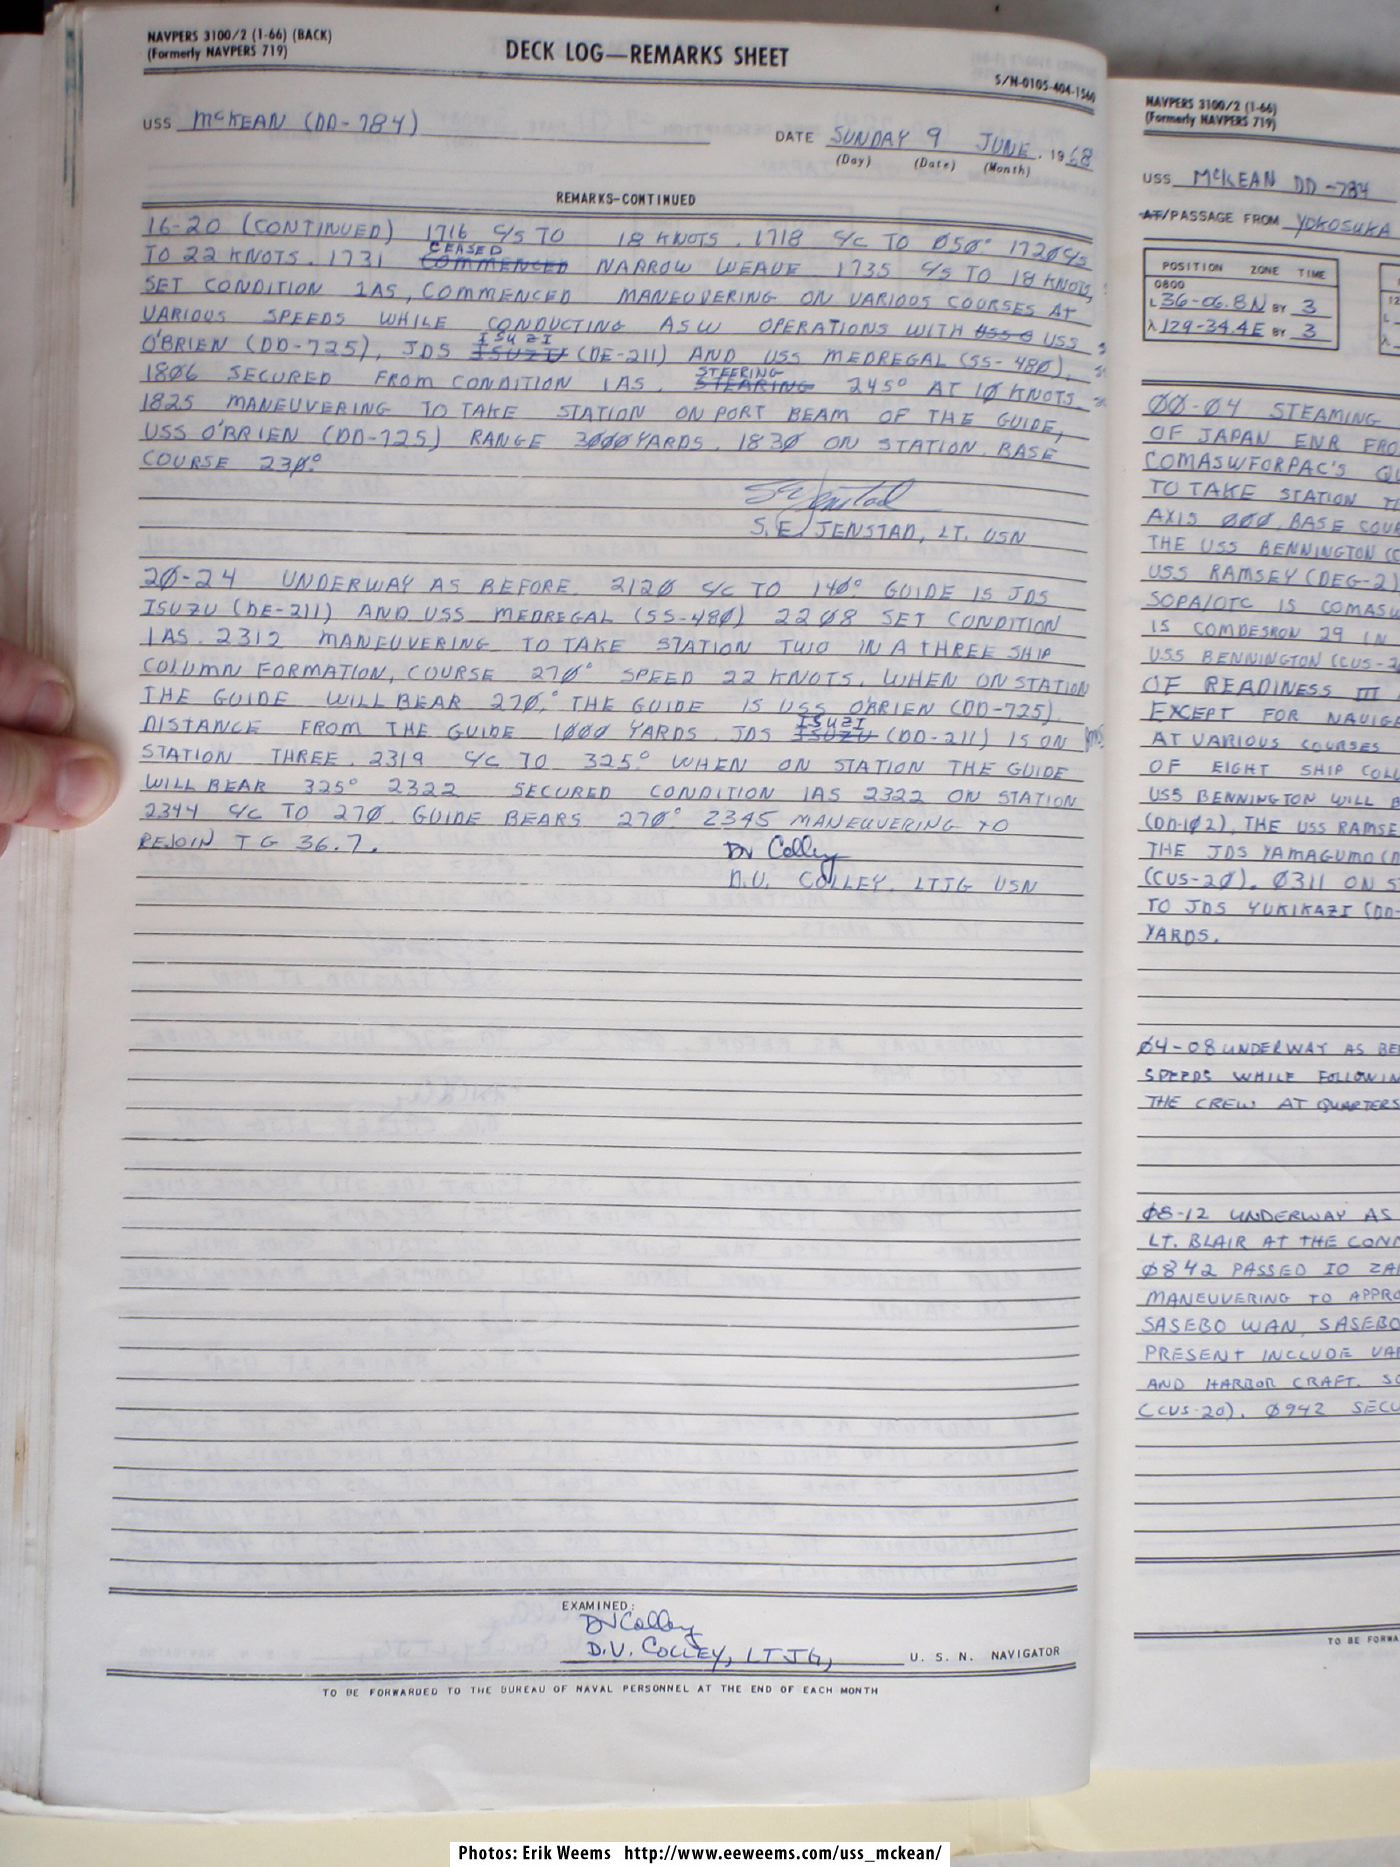 NAVPERS 3100/2 (1-66) (BACK)
(Formerly NAVPERS 719)
DECK LOG—REMARKS SHEET
S/N-0105-404-1560
USS McKEAN (DD-784)
DATE SUNDAY 9 JUNE, 1968
(Day) (Date) (Month)
REMARKS-CONTINUED
16-20 (CONTINUED) 1716 C/S TO 18 KNOTS. 1718 C/C TO Ø5Ø° 172Ø C/S
TO 22 KNOTS. 1731 COMMENCED CEASED NARROW WEAVE. 1735 C/S TO 18 KNOTS,
SET CONDITION 1AS, COMMENCED MANEUVERING ON VARIOUS COURSES AT
VARIOUS SPEEDS WHILE CONDUCTING ASW OPERATIONS WITH USS O USS
O'BRIEN (DD-725), JDS ISUZU ISUZI (DE-211) AND USS MEDREGAL (SS-48Ø).
18Ø6 SECURED FROM CONDITION 1AS. STEARING STEERING 245° AT 1Ø KNOTS.
1825 MANEUVERING TO TAKE STATION ON PORT BEAM OF THE GUIDE,
USS O'BRIEN (DD-725) RANGE 3ØØØ YARDS. 183Ø ON STATION. BASE
COURSE 23Ø°
S.E. JENSTAD, LT. USN
20-24 UNDERWAY AS BEFORE. 212Ø C/C TO 14Ø° GUIDE IS JDS
ISUZU (DE-211) AND USS MEDREGAL (SS-48Ø) 22Ø8 SET CONDITION
1AS. 2312 MANEUVERING TO TAKE STATION TWO IN A THREE SHIP
COLUMN FORMATION, COURSE 27Ø° SPEED 22 KNOTS. WHEN ON STATION
THE GUIDE WILL BEAR 27Ø°. THE GUIDE IS USS O'BRIEN (DD-725).
DISTANCE FROM THE GUIDE 1ØØØ YARDS. JDS ISUZU ISUZI (DD-211) IS ON
STATION THREE. 2319 C/C TO 325° WHEN ON STATION THE GUIDE
WILL BEAR 325° 2322 SECURED CONDITION 1AS 2322 ON STATION
2344 C/C TO 27Ø. GUIDE BEARS 27Ø° 2345 MANEUVERING TO
REJOIN TG 36.7.
DV Colley
D.V. COLLEY, LTJG USN
EXAMINED:
DV Colley
D.V. COLLEY, LTJG, U. S. N. NAVIGATOR
TO BE FORWARDED TO THE BUREAU OF NAVAL PERSONNEL AT THE END OF EACH MONTH
NAVPERS 3100/2 (1-66)
(Formerly NAVPERS 719)
USS McKEAN DD-784
AT/PASSAGE FROM YOKOSUKA
POSITION ZONE TIME
0800
L 36-06.8N BY 3
λ 129-34.4E BY 3
ØØ-Ø4 STEAMING
OF JAPAN ENR FRO
COMASWFORPAC'S
TO TAKE STATION
AXIS ØØØ, BASE COUR
THE USS BENNINGTON (C
USS RAMSEY (DEG-2)
SOPA/OTC IS COMASW
IS COMDESRON 29 IN
USS BENNINGTON (CVS-2
OF READINESS III
EXCEPT FOR NAVIGA
AT VARIOUS COURSES
OF EIGHT SHIP COLU
USS BENNINGTON WILL B
(DD-1Ø2), THE USS RAMSE
THE JDS YAMAGUMO (D
(CVS-2Ø). Ø311 ON S
TO JDS YUKIKAZI (DD-
YARDS.
Ø4-08 UNDERWAY AS BE
SPEEDS WHILE FOLLOWIN
THE CREW AT QUARTERS
Ø8-12 UNDERWAY AS
LT. BLAIR AT THE CONN
Ø842 PASSED IO ZA
MANEUVERING TO APPRO
SASEBO WAN, SASEBO
PRESENT INCLUDE VAR
AND HARBOR CRAFT. SO
(CVS-20). Ø942 SECU
TO BE FORWA
Photos: Erik Weems http://www.eeweems.com/uss_mckean/